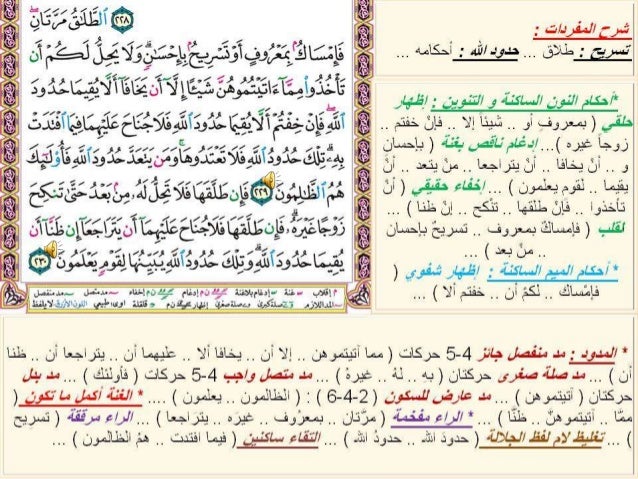 شرح المفردات :
تسريح : طلاق ... حدود الله : أحكامه ...
*أحكام النون الساكنة و التنوين : إظهار
حلقي ( بمعروفٍ أو .. شيئاً إلا .. فإنْ خفتم ..
زوجاً غيره )... إدغام ناقص بغنة ( بإحسانٍ
و .. أنْ يخافا .. أنْ يتراجعا .. منْ يتعد .. أنْ
يقيما .. لقومٍ يعلمون ) ... إخفاء حقيقي ( أنْ
تأخذوا .. فإنْ طلقها .. تنْكح .. إنْ ظنا ) ...
قلب ( فإمساكٌ بمعروف .. تسريحٌ بإحسان
.. منْ بعد ) ...
* أحكام الميم الساكنة : إظهار شفوي (
فإمْساك .. لكمْ أن .. خفتم ألا ) ...
ٱلطَّلَٰقُ مَرَّتَانِ
فَإِمْسَاكٌ بِمَعْرُوفٍ أَوْ تَسْرِيحٌ بِإِحْسَٰنٍ وَلَا يَحِلُّ لَكُمْ أَن
تَأْخُذُوا۟ مِمَّآ ءَاتَيْتُمُوهُنَّ شَيْـًٔا إِلَّآ أَن يَخَافَآ أَلَّا يُقِيمَا حُدُودَ
ٱللَّهِ فَإِنْ خِفْتُمْ أَلَّا يُقِيمَا حُدُودَ ٱللَّهِ فَلَا جُنَاحَ عَلَيْهِمَا فِيمَا ٱفْتَدَتْ
بِهِۦ تِلْكَ حُدُودُ ٱللَّهِ فَلَا تَعْتَدُوهَا وَمَن يَتَعَدَّ حُدُودَ ٱللَّهِ فَأُو۟لَٰٓئِكَ
هُمُ ٱلظَّٰلِمُونَ ٢٢٩ فَإِن طَلَّقَهَا فَلَا تَحِلُّ لَهُۥ مِنۢ بَعْدُ حَتَّىٰ تَنكِحَ
زَوْجًا غَيْرَهُۥ فَإِن طَلَّقَهَا فَلَا جُنَاحَ عَلَيْهِمَآ أَن يَتَرَاجَعَآ إِن ظَنَّآ أَن
يُقِيمَا حُدُودَ ٱللَّهِ وَتِلْكَ حُدُودُ ٱللَّهِ يُبَيِّنُهَا لِقَوْمٍ يَعْلَمُونَ ٢٣٠
* المدود : مد منفصل جائز 4-5 حركات ( مما آتيتموهن .. إلا أن .. يخافا ألا .. عليهما أن .. يتراجعا أن .. ظنا
أن ) ... مد صلة صغرى حركتان ( به .. لهُ .. غيرهُ ) ... مد متصل واجب 4-5 حركات ( فأولئك ) ... مد بدل
حركتان ( آتيتموهن ) ... مد عارض للسكون ( 2-4-6 ) : ( الظالمون .. يعلمون ) .... * الغنة أكمل ما تكون (
ممَّا .. آتيتموهنَّ .. ظنَّا ) ... * الراء مفخمة ( مرَّتان .. بمعرْوف .. غيرَه .. يترَاجعا ) ... الراء مرققة ( تسرِيح
) ... تغليظ لام لفظ الجلالة ( حدودَ الله .. حدودُ الله ) ... التقاء ساكنين ( فيما افتدت .. همُ الظالمون ) ...